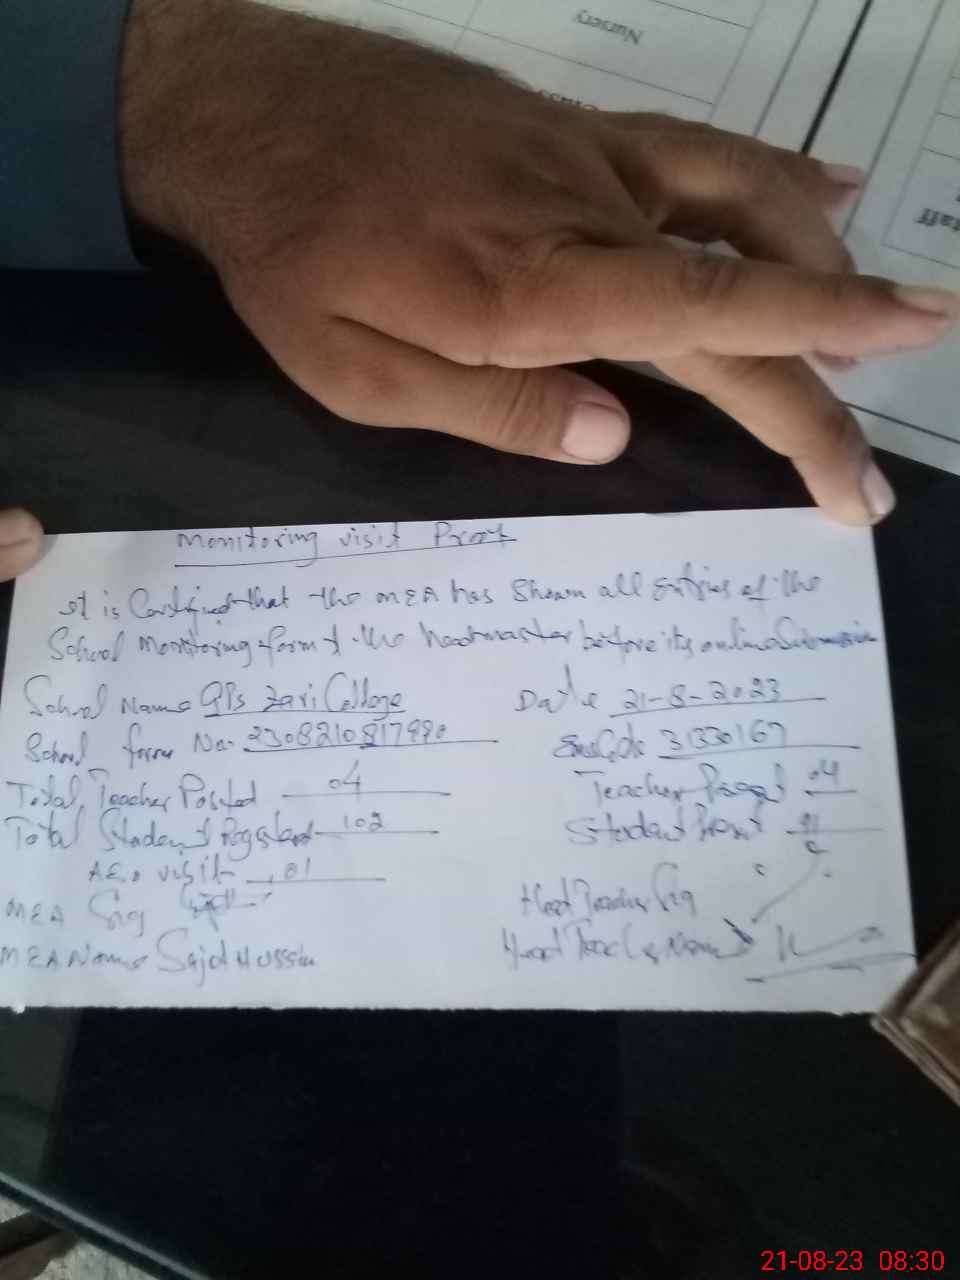 Nursery
Class
Staff
Monitoring visit Proof
It is Certified that the MEA has shown all Entries of the
School Monitoring form to the headmaster before its online Submission
School Name GPS Zari College
Date 21-8-2023
School form No. 2308210817990
Emis Code 31330167
Total Teacher Posted 04
Teacher Present 04
Total Student Registerd 102
Student Present 91
AEO visit 01
MEA Sig
Head Teacher Sig
MEA Name Sajid Hussain
Head Teacher Name
21-08-23 08:30